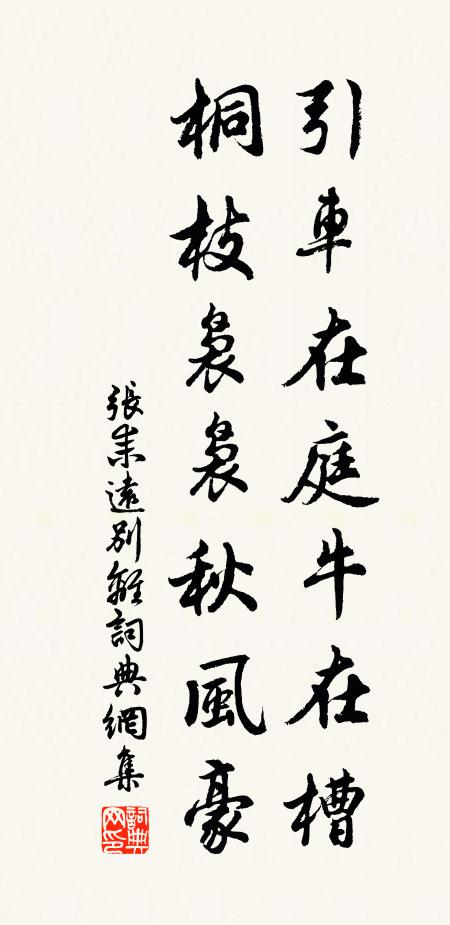 引車在庭牛在槽
桐枝裊裊秋風豪
張耒遠別離詞典網集
詞典网印